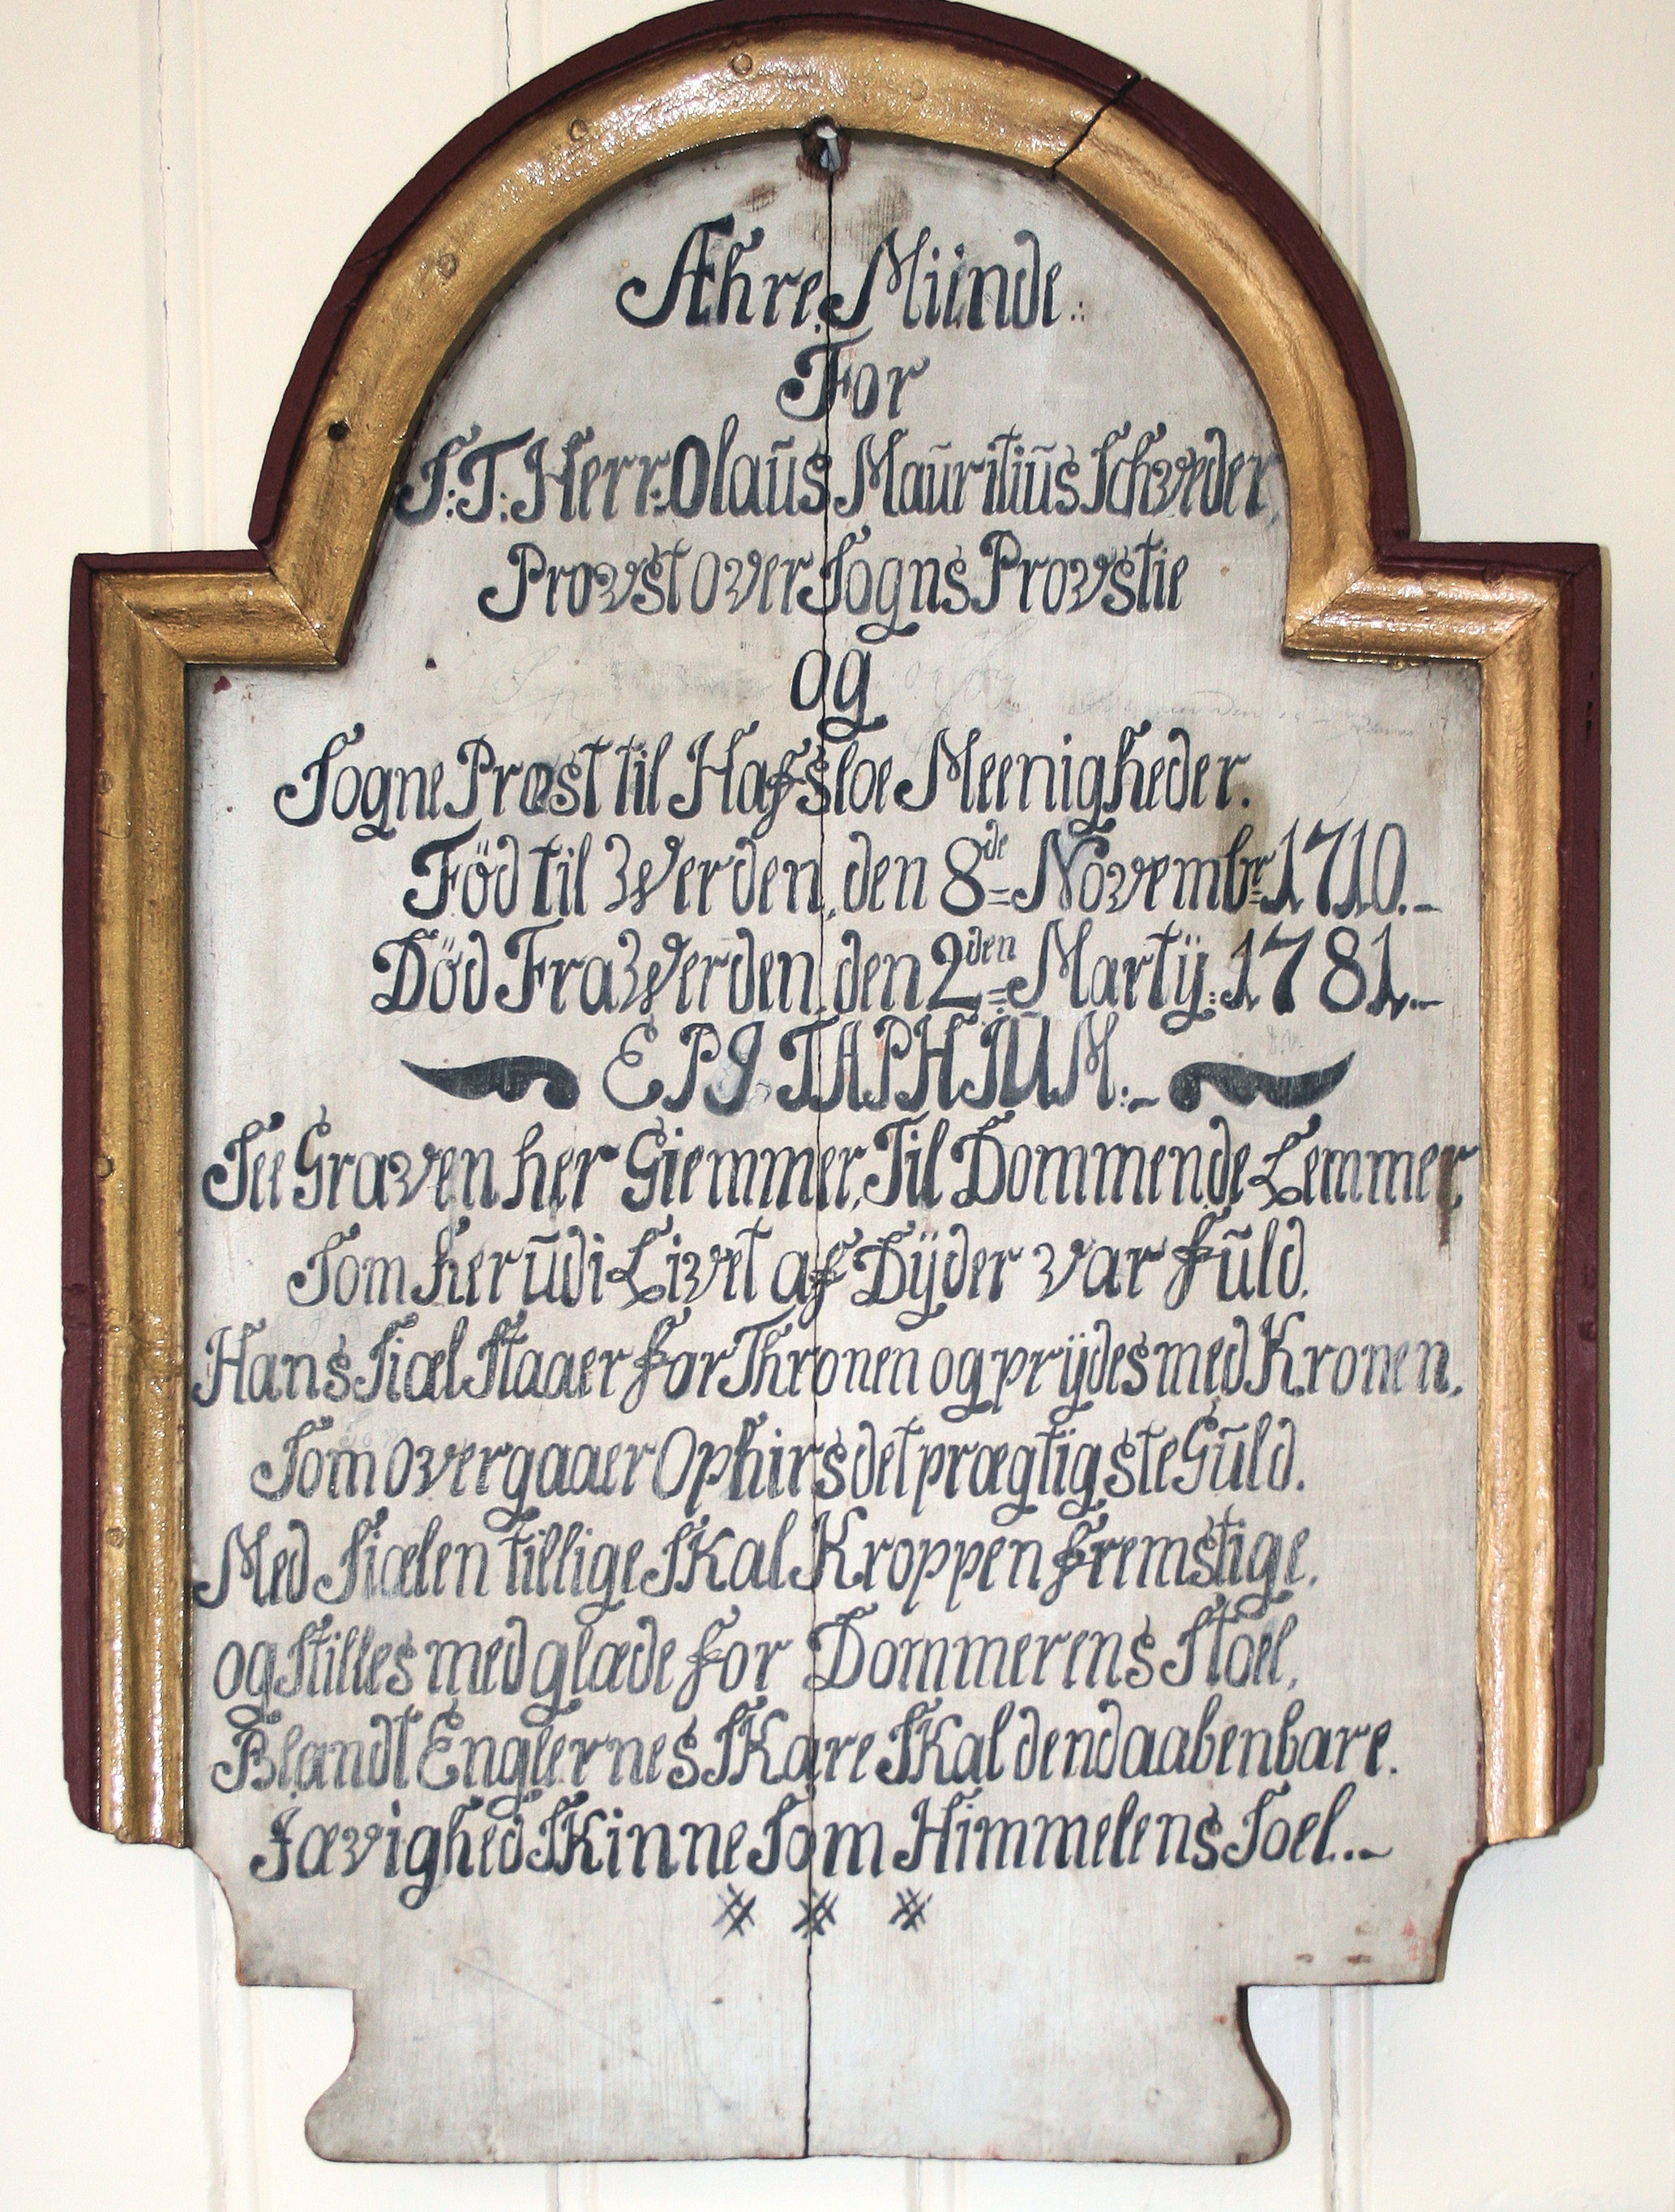 Æhre Münde.
For
S: T: Herr: Olaüs Maüritiüs Schweder,
Provst over Sogns Provstie
og
Sogne Præst til Hafsloe Meenigheder.
Föd til Werden, den 8de Novembr 1710.
Död Fra Werden, den 2den Martij: 1781.
EPITAPHIUM.
See Graven her Giemmer, Til Dommende Lemmer
Som her üdi Livet af Dÿder var füld.
Hans Siæl Staaer for Thronen og prÿdes med Kronen,
Som overgaaer Ophirs det prægtigste Güld.
Med Siælen tillige Skal Kroppen fremstige,
og Stilles med glæde for Dommerens Stoel,
Blandt Englernes Skare Skal dend aabenbare.
I ævighed Skinne Som Himmelens Soel.